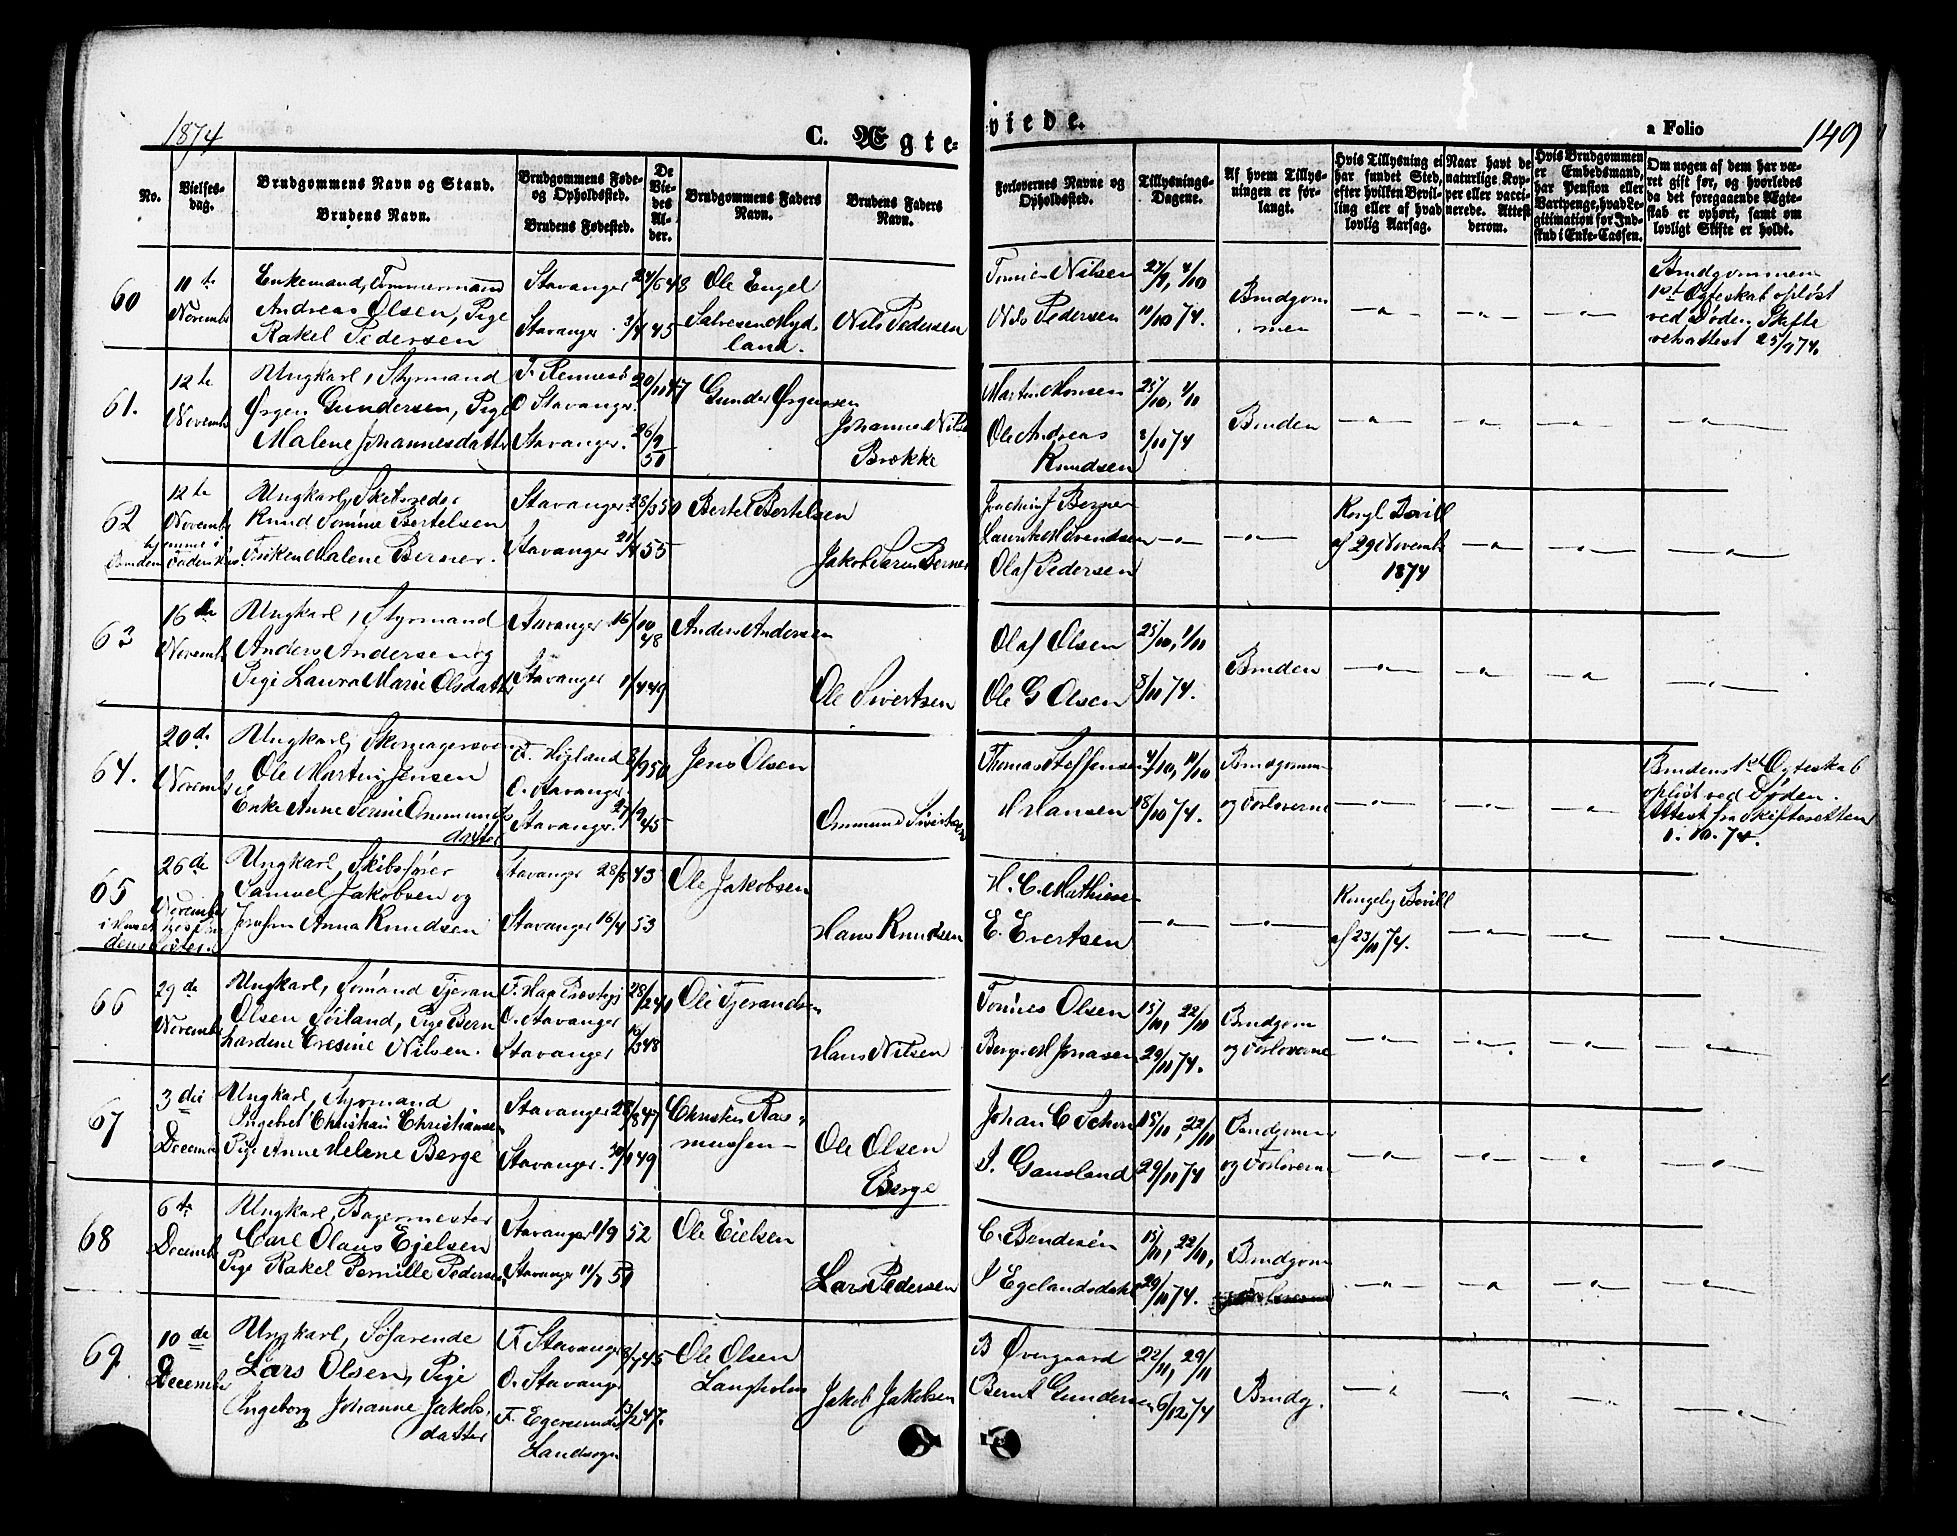 1874
C. Ægte-
viede.
a Folio
149
No.
Vielses-
dag.
Brudgommens Navn og Stand.
Brudens Navn.
Brudgommens Føde-
og Opholdssted.
Brudens Fødested.
De
Vie-
des
Al-
der.
Brudgommens Faders
Navn.
Brudens Faders
Navn.
Forlovernes Navne og
Opholdssted.
Tillysnings-
Dagene.
Af hvem Tillys-
ningen er for-
langt.
Hvis Tillysning ei
har fundet Sted,
efter hvilken Bevil-
ling eller af hvad
lovlig Aarsag.
Naar havt de
naturlige Kop-
per eller vacci-
nerede. Attest
derom.
Hvis Brudgommen
er Embedsmand,
har Pension eller
Vartpenge, hvad Le-
gitimation for Ind-
skud i Enke-Cassen.
Om nogen af dem har væ-
ret gift før, og hvorledes
da det foregaaende Ægte-
skab er ophørt, samt om
lovligt Skifte er holdt.
60
11te
Novemb
Enkemand, Tømmermand
Andreas Olsen, Pige
Rakel Pedersen
Stavanger 24/6 48
Stavanger 3/4 45
Ole Engel
Salvesen Myd
land.
Nils Pedersen
Nilsen
Nils Pedersen
27/9, 4/10
11/10 74.
Brudgom
men
— " —
— " —
— " —
Brudgommens
1st Ægteskab opløst
ved Døden Skifte
retsattest 25/9 74.
61.
12te
Novemb
Ungkarl, Styrmand
Ørgen Gundersen, Pige
Malene Johannesdatter
F. Rennesø
O Stavanger.
Stavanger.
20/11 47
26/9
51
Gunder Ørgensen
Johannes Nils
Brekke
Marten Monsen
Ole Andreas
Knudsen
25/10, 1/10
8/11 74
Bruden
— " —
— " —
— " —
— " —
62
12te
Novemb
hjemme i
Brudens Faders Hus.
Ungkarl, Skibsreder
Knud Tomine Bertelsen
Frøken Malene Berner.
Stavanger 28/3 50
Stavanger 21/4 55
Bertel Bertelsen
Jakob Sørus Berner
Joachim J Berner
Laurits M Svendsen
Olaf Pedersen
— " —
— " —
Kngl Bevill
af 29 Novemb
1874
— " —
— " —
— " —
63
16de
Novemb
Ungkarl, Styrmand
Anders Andersen og
Pige Laura Marie Olsdatter
Stavanger 16/10
48
Stavanger 1/4 49
Anders Andersen
Ole Sivertsen
Olaf Olsen
Ole G Olsen
25/10, 1/10
8/11 74.
Bruden
— " —
— " —
— " —
— " —
64.
20de
Novemb
Ungkarl, Skomagersven
Ole Martin Jensen
Enke Anne Serine Ommunds
datter
F. Høgland
O. Stavanger
Stavanger.
8/9 50
27/9
45
Jens Olsen
Ommund Sivertsen
Thomas Steffensen
H Hansen
4/10, 11/10
18/10 74.
Brudgommen
og Forloverne
— " —
— " —
— " —
Brudens 1st Ægteskab
opløst ved Døden.
Attest fra Skifteretten
1. 10. 74.
65
26de
November
Ungkarl, Skibsfører
Samuel Jakobsen og
Jomfru Anna Knudsen
Stavanger 28/8 43
Stavanger 16/4 53
Ole Jakobsen
Hans Knudsen
H. C. Mathiesen
E. Evertsen
— " —
— " —
Kongelig Bevill
af 23/11 74.
— " —
— " —
— " —
66
29de
Novemb
Ungkarl, Sømand Tjeran
Olsen Søiland, Pige Bern
hardine Eresine Nilsen.
F. Haa Præstegj
O. Stavanger
Stavanger
28/2 41
10/3 48
Ole Tjerandsen
Hans Nilsen
Tønnes Olsen
Berge H Jonasen
15/11, 22/11
29/11 74.
Brudgom
og Forloverne
— " —
— " —
— " —
— " —
67
3die
Decemb
Ungkarl, Styrmand
Ingebret Christian Christiansen
Pige Anne Helene Berge
Stavanger 28/8 47
Stavanger. 49
Christen Ras-
mussen
Ole Olsen
Berge
Johan C Schou
S. Gausland
15/11, 22/11
29/11 74
Brudgommen
og Forloverne
— " —
— " —
— " —
— " —
68
6te
Decemb
Ungkarl, Bagermester
Carl Olaus Ejelsen
Pige Rakel Pernille Pedersen
Stavanger 11/9 52
Stavanger 11/7 51
Ole Eielsen
Lars Pedersen
C. Bendixen
J Egelandsdahl
15/11, 22/11,
29/11 74.
Brudgom
— " —
— " —
— " —
— " —
69.
10de
Decemb
Ungkarl, Søfarende
Lars Olsen, Pige
Ingeborg Johanne Jakobs-
datter
F. Stavanger 8/7 45
O. Stavanger
F. Egersunds 13/2 47.
Landsogn
Ole Olsen
Langholm
Jakob Jakobsen
B Øvergaard
Bernt Gundersen
22/11, 29/11
6/12 74
Brudg.
— " —
— " —
— " —
— " —